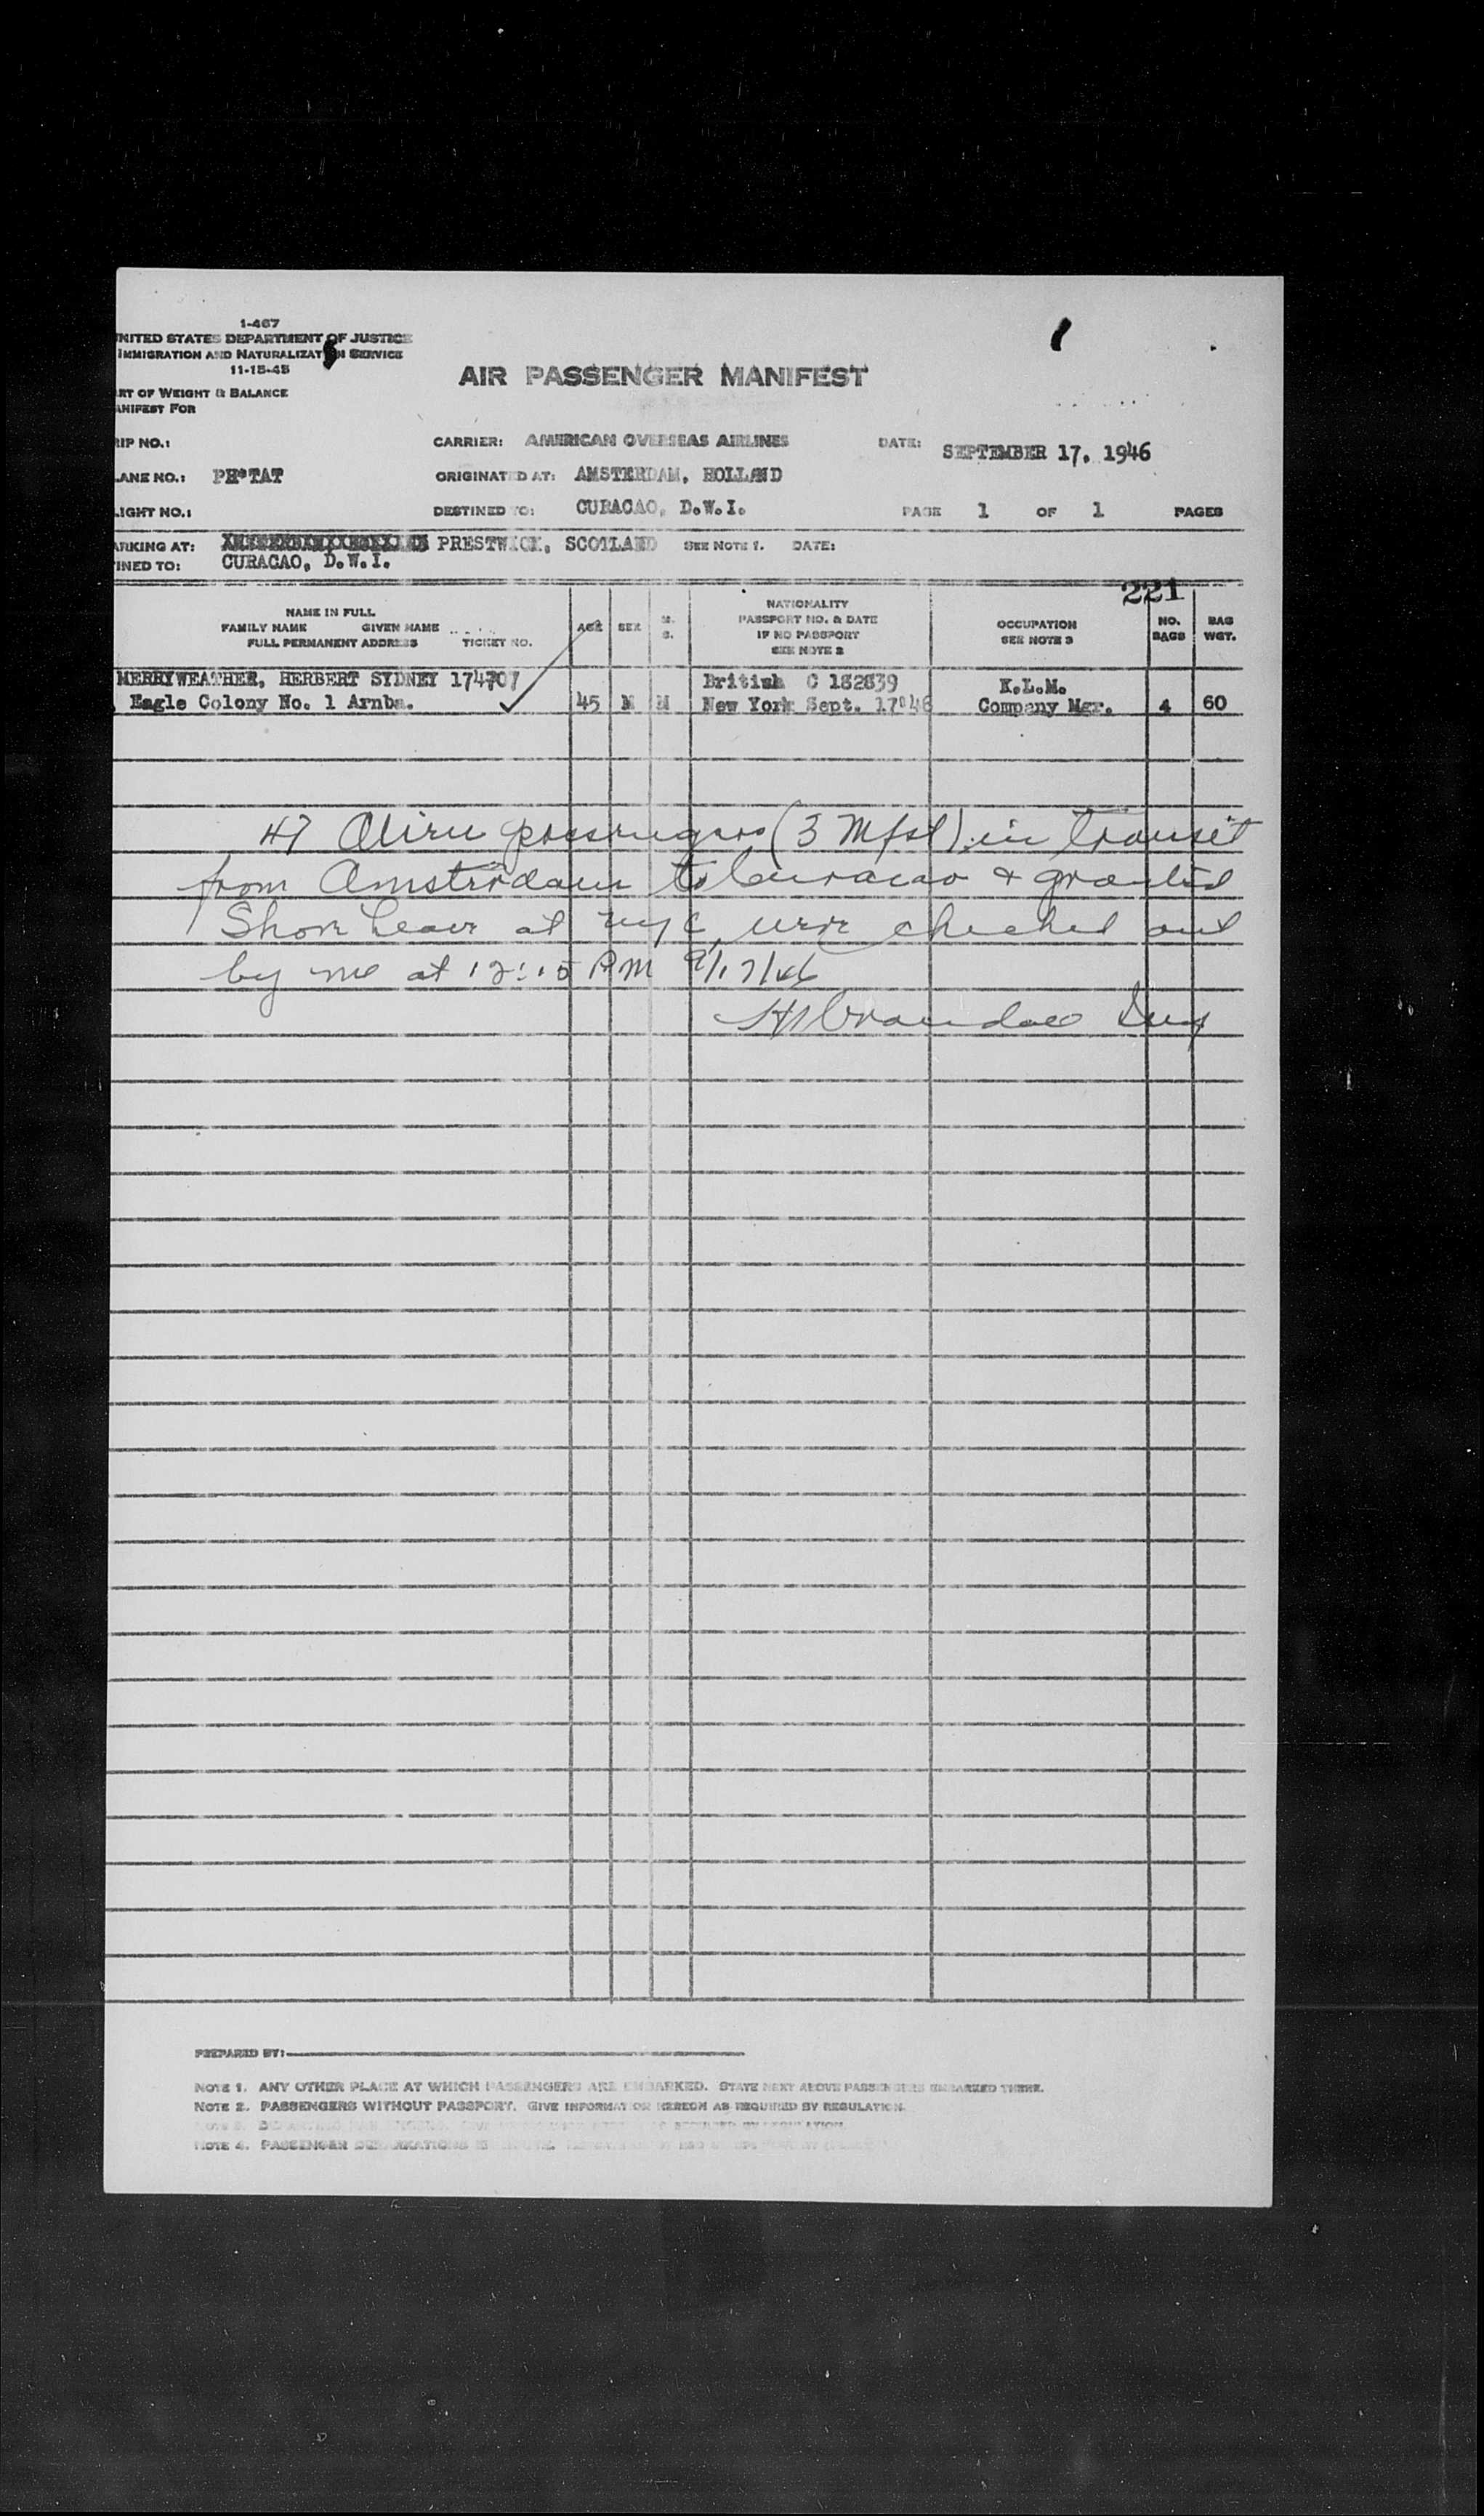 1-467
UNITED STATES DEPARTMENT OF JUSTICE
IMMIGRATION AND NATURALIZATION SERVICE
11-15-45
AIR PASSENGER MANIFEST
RT OF WEIGHT & BALANCE
ANIFEST FOR
RIP NO.: CARRIER: AMERICAN OVERSEAS AIRLINES DATE: SEPTEMBER 17, 1946
LANE NO.: PH*TAT ORIGINATED AT: AMSTERDAM, HOLLAND
LIGHT NO.: DESTINED TO: CURACAO, D.W.I. PAGE 1 OF 1 PAGES
ARKING AT: PRESTWICK, SCOTLAND SEE NOTE 1. DATE:
INED TO: CURACAO, D.W.I.
221
NAME IN FULL
FAMILY NAME GIVEN NAME
FULL PERMANENT ADDRESS TICKET NO.
AGE SEX M. S.
NATIONALITY
PASSPORT NO. & DATE
IF NO PASSPORT
SEE NOTE 2
OCCUPATION
SEE NOTE 3
NO. BAGS
BAG WGT.
MERRYWEATHER, HERBERT SYDNEY 174707 British C 182839 K.L.M.
Eagle Colony No. 1 Arnba. 45 M M New York Sept. 17°46 Company Mgr. 4 60
47 Alien passengers (3 Mfst) in transit
from Amsterdam to Curacao & granted
Shore Leave at NYC, were checked out
by me at 12:15 PM 9/17/46
Crandall Insp
PREPARED BY:
NOTE 1. ANY OTHER PLACE AT WHICH PASSENGERS ARE EMBARKED. STATE NEXT ABOVE PASSENGERS EMBARKED THERE.
NOTE 2. PASSENGERS WITHOUT PASSPORT. GIVE INFORMATION HEREON AS REQUIRED BY REGULATION.
NOTE 4. PASSENGER